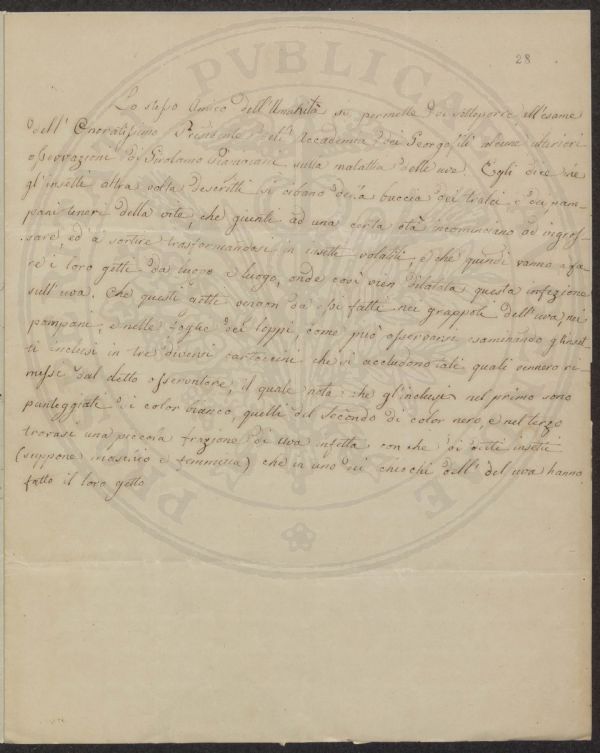 28
PVBLICAE
Lo stesso Amico dell'Umanità si permette di sottoporre all'esame
dell' Onoratissimo Presidente dell' Accademia dei Georgofili alcune ulteriori
osservazioni di Girolamo sulla malattia delle uve. Egli dice che
gl'insetti altra volta descritti si cibano della buccia dei tralci, e dei pam-
pani teneri della vite, che giunti ad una certa età incominciano ad ingros-
sare, ed a sortire trasformandosi in insetti volatili, e che quindi vanno a fa-
re i loro getti da luogo a luogo, onde così vien dilatata questa infezione
sull'uva. Che questi getti vengon da essi fatti nei grappoli dell'uva, nei
pampani, e nelle foglie dei loppi, come può osservarsi esaminando gl'inset-
ti inclusi in tre diversi cartoccini che si accludono tali, quali vennero ri-
messi dal detto osservatore, il quale nota che gl'inclusi nel primo sono
punteggiati di color bianco, quelli del secondo di color nero, e nel terzo
trovasi una piccola frazione di uva infetta con che di detti insetti
(suppone maschio e femmina) che in uno dei chicchi dell' del uva hanno
fatto il loro getto